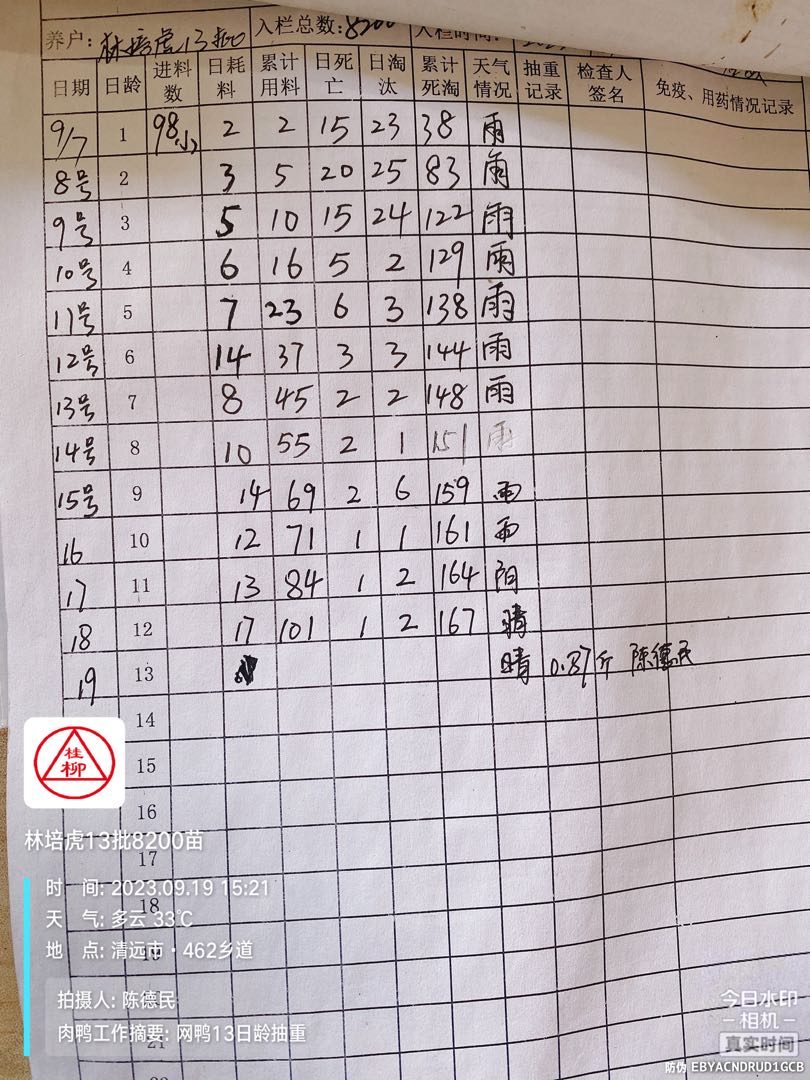 养户: 林培虎13批 入栏总数: 8200 入栏时间:
日期 日龄 进料数 日耗料 累计用料 日死亡 日淘汰 累计死淘 天气情况 抽重记录 检查人签名 免疫、用药情况记录
9/7 1 98小 2 2 15 23 38 雨
8号 2 3 5 20 25 83 雨
9号 3 5 10 15 24 122 雨
10号 4 6 16 5 2 129 雨
11号 5 7 23 6 3 138 雨
12号 6 14 37 3 3 144 雨
13号 7 8 45 2 2 148 雨
14号 8 10 55 2 1 151 雨
15号 9 14 69 2 6 159 雨
16 10 12 71 1 1 161 雨
17 11 13 84 1 2 164 阳
18 12 17 101 1 2 167 晴
19 13 晴 0.87斤 陈德民
14
15
桂柳
16
林培虎13批8200苗
17
时 间: 2023.09.19 15:21
18
天 气: 多云 33℃
地 点: 清远市·462乡道
19
拍摄人: 陈德民
肉鸭工作摘要: 网鸭13日龄抽重
21
今日水印
相机
真实时间
防伪 EBYACNDRUD1GCB